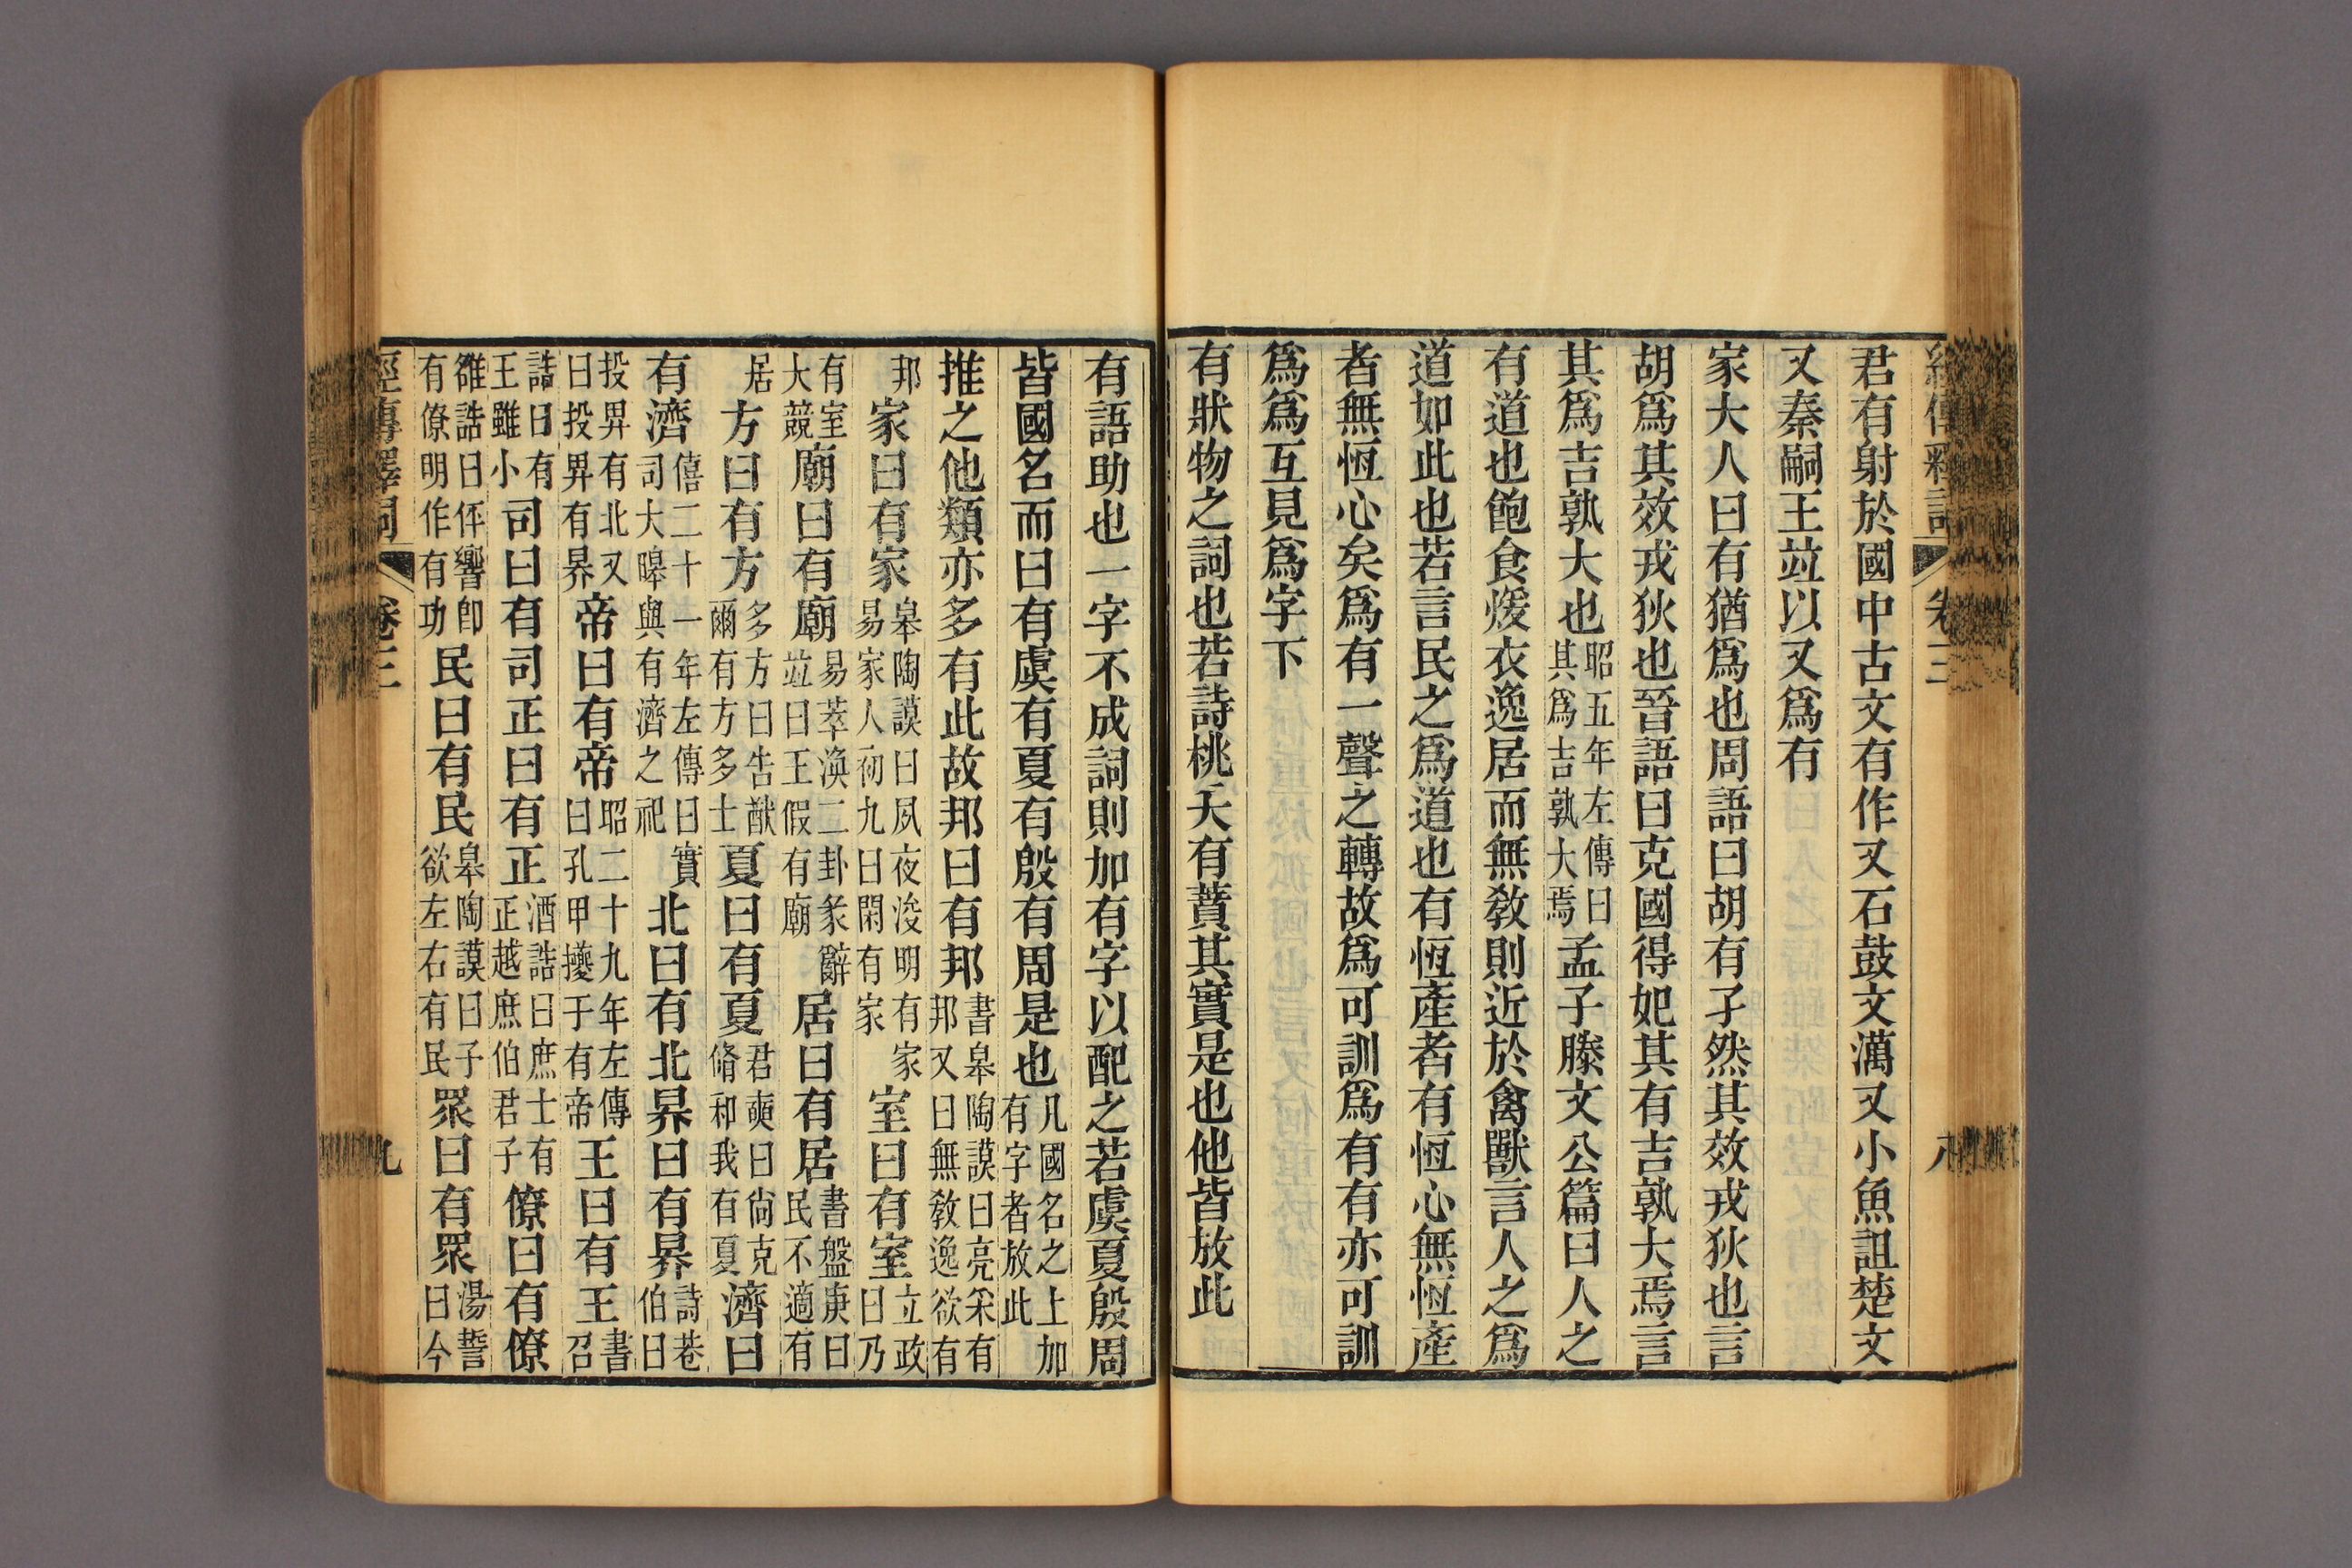 君有射於國中古文有作又石鼓文澫又小魚詛楚文
又秦嗣王竝以又爲有
家大人曰有猶爲也周語曰胡有孑然其效戎狄也言
胡爲其效戎狄也晉語曰克國得妃其有吉孰大焉言
其爲吉孰大也昭五年左傳曰其爲吉孰大焉孟子滕文公篇曰人之
有道也飽食煖衣逸居而無敎則近於禽獸言人之爲
道如此也若言民之爲道也有恆產者有恆心無恆產
者無恆心矣爲有一聲之轉故爲可訓爲有有亦可訓
爲爲互見爲字下
有狀物之詞也若詩桃夭有蕡其實是也他皆放此
有語助也一字不成詞則加有字以配之若虞夏殷周
皆國名而曰有虞有夏有殷有周是也凡國名之上加有字者放此
推之他類亦多有此故邦曰有邦書皋陶謨曰亮采有邦又曰無敎逸欲有
邦家曰有家皋陶謨曰夙夜浚明有家易家人初九曰閑有家室曰有室立政曰乃
有室大競廟曰有廟易萃渙二卦彖辭竝曰王假有廟居曰有居書盤庚曰民不適有
居方曰有方多方曰告猷爾有方多士夏曰有夏君奭曰尙克脩和我有夏濟曰
有濟僖二十一年左傳曰實司大皞與有濟之祀北曰有北昦曰有昦詩巷伯曰
投畀有北又曰投畀有昦帝曰有帝昭二十九年左傳曰孔甲擾于有帝王曰有王書召
誥曰有王雖小司曰有司正曰有正酒誥曰庶士有正越庶伯君子僚曰有僚
雒誥曰伻響卽有僚明作有功民曰有民皋陶謨曰子欲左右有民眾曰有眾湯誓曰今
卷三
九